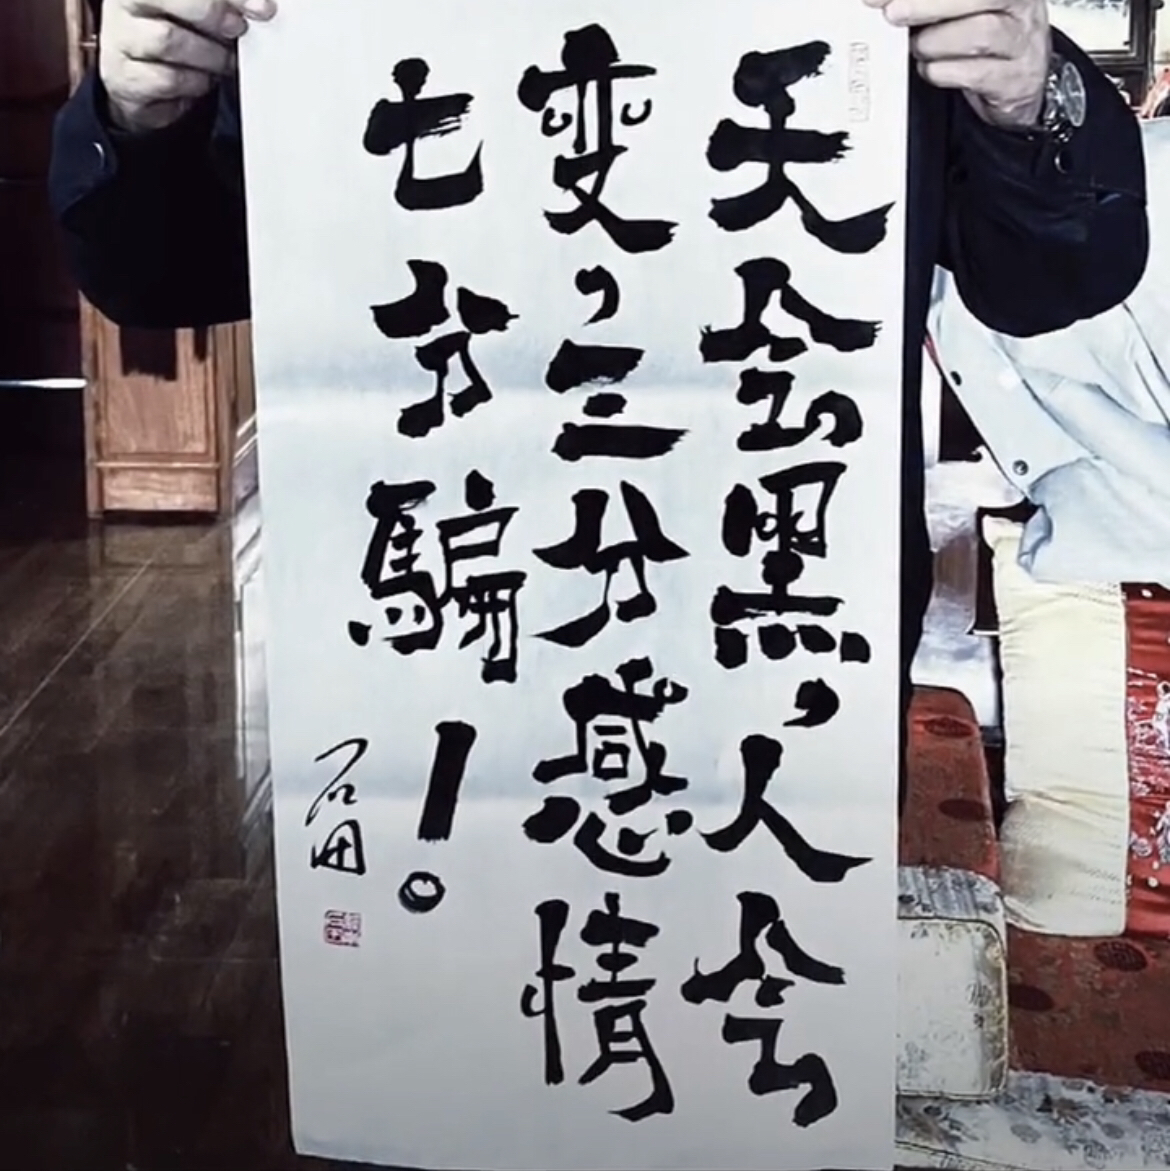 天会黑，人会
变，三分感情
七分騙！。
石开